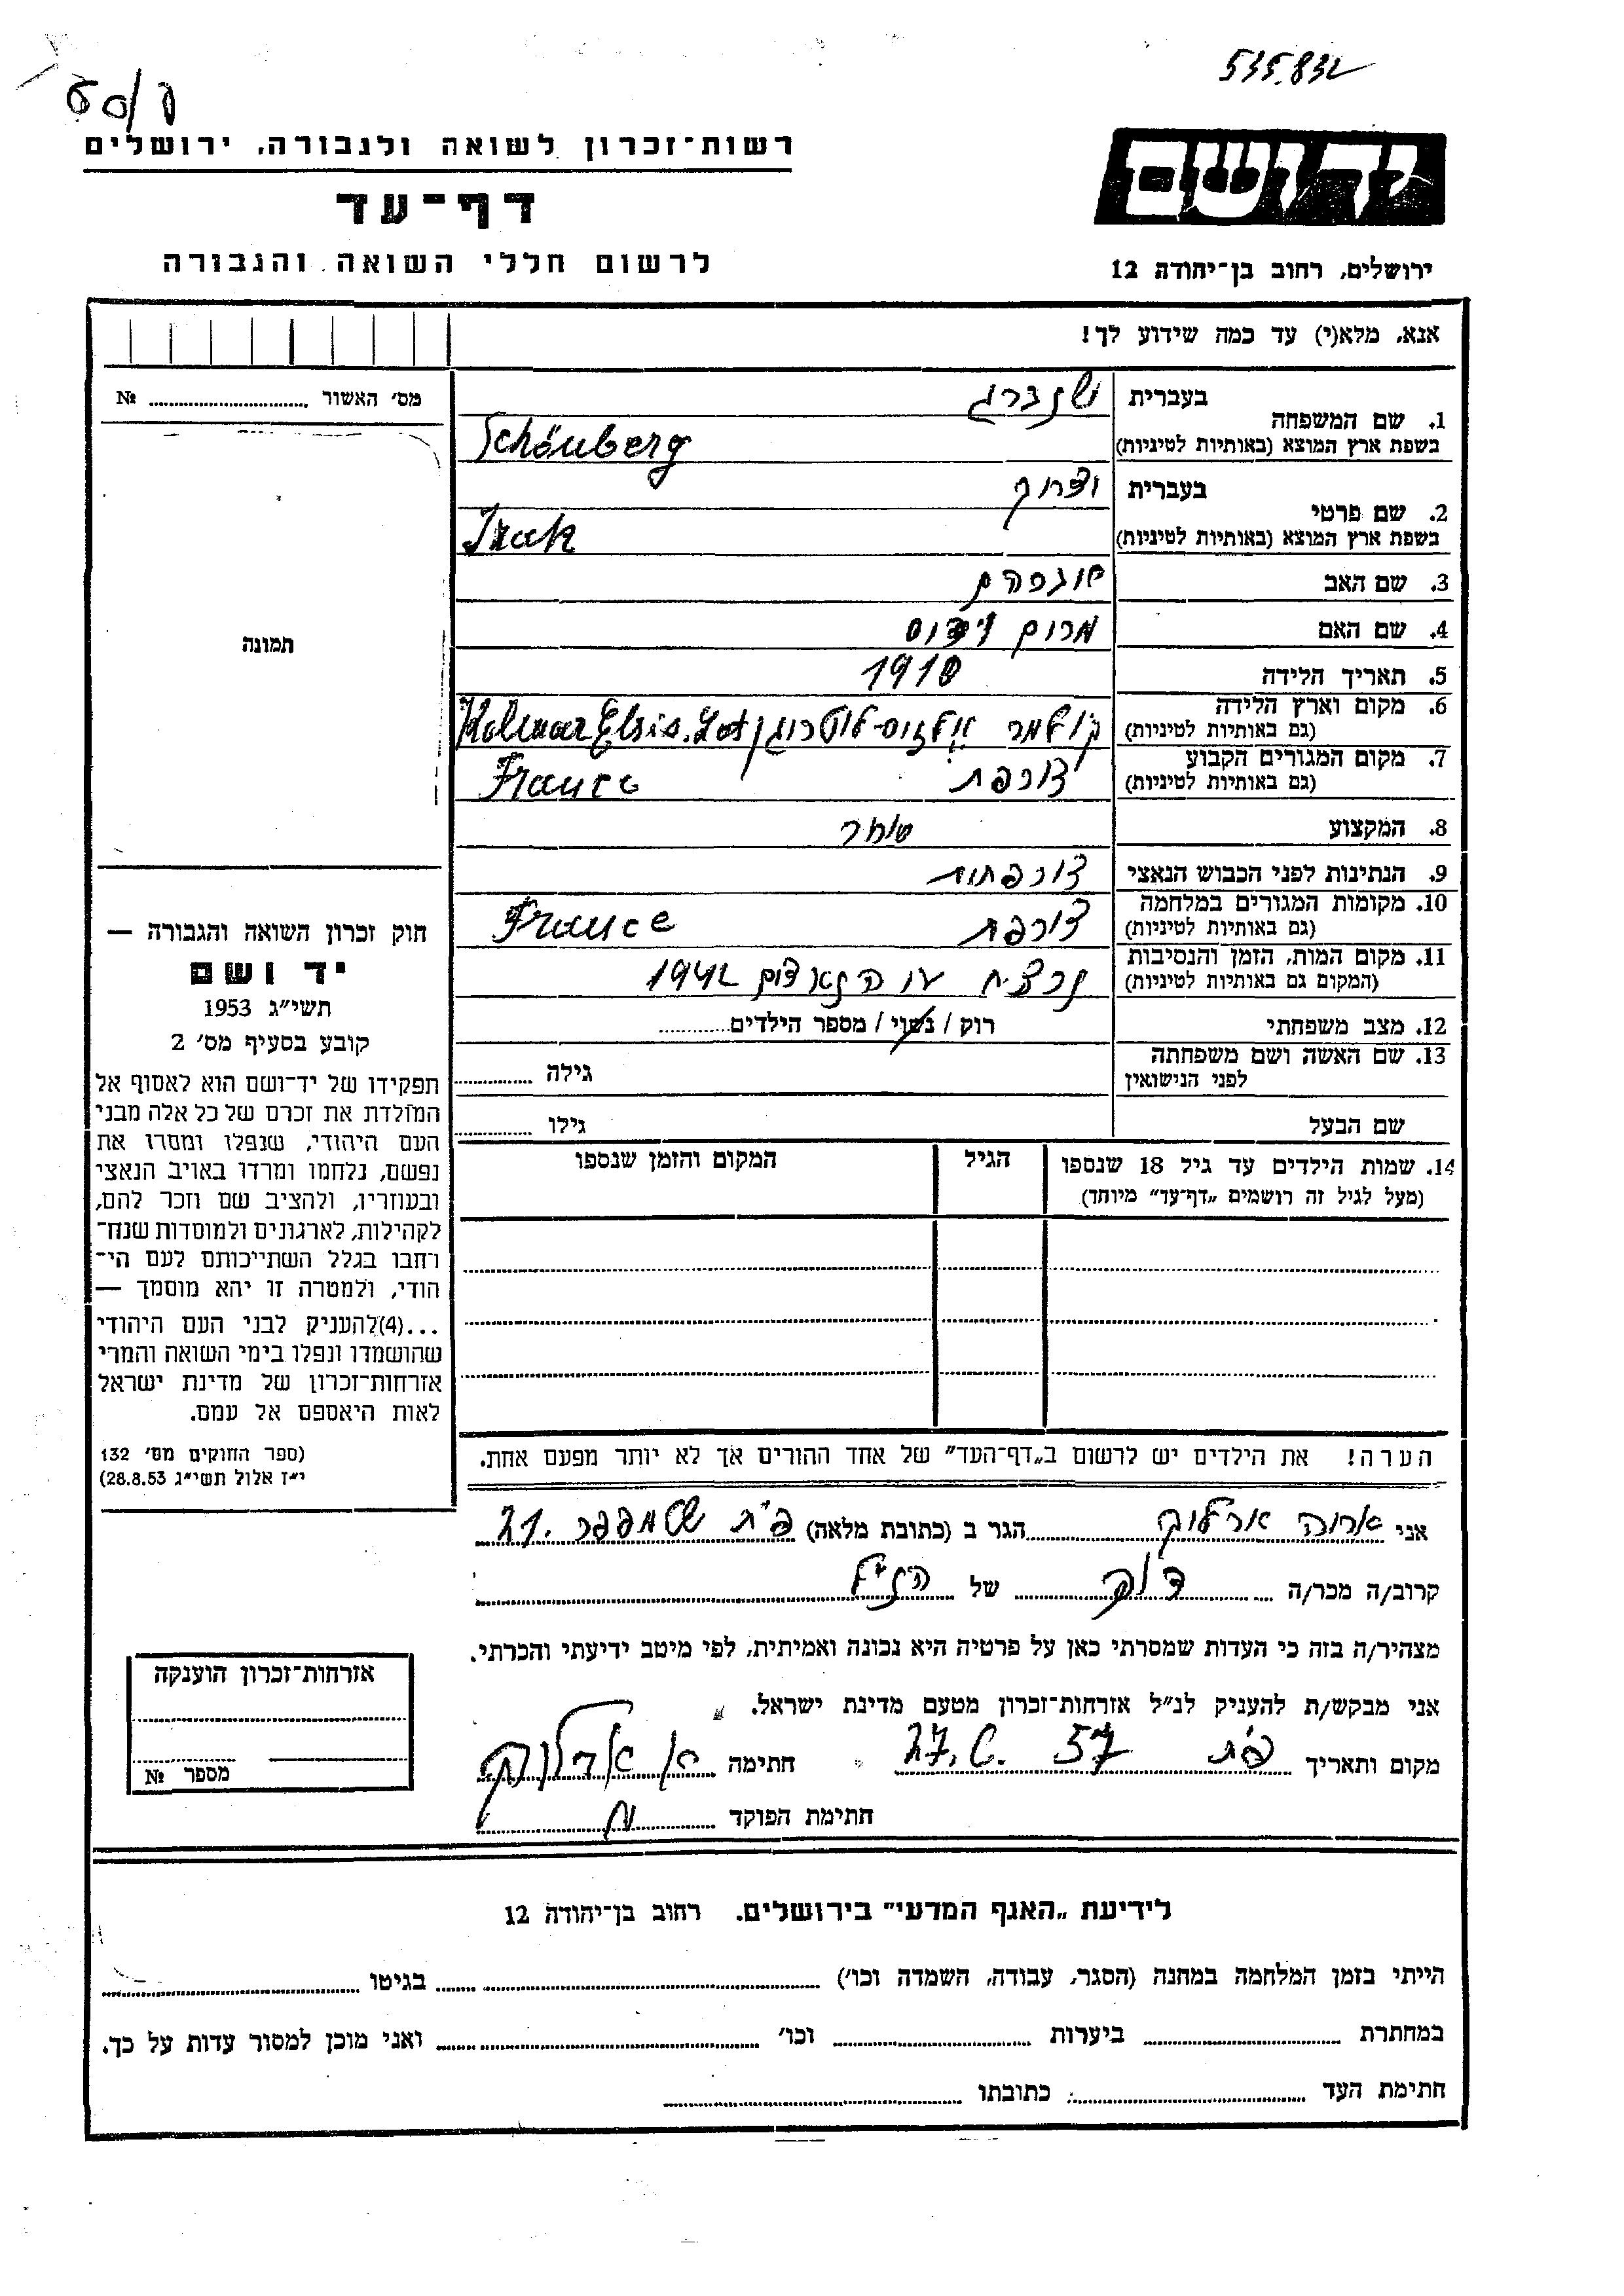 535.832
רשות-זכרון לשואה ולגבורה, ירושלים
דף-עד
לרשום חללי השואה והגבורה
ידושם
ירושלים, רחוב בן-יהודה 12
אנא, מלא(י) עד כמה שידוע לך!
מס' האשור № 
תמונה
חוק זכרון השואה והגבורה —
יד ושם
תשי"ג 1953
קובע בסעיף מס' 2
תפקידו של יד-ושם הוא לאסוף אל
המולדת את זכרם של כל אלה מבני
העם היהודי, שנפלו ומסרו את
נפשם, נלחמו ומרדו באויב הנאצי
ובעוזריו, ולהציב שם וזכר להם,
לקהילות, לארגונים ולמוסדות שנח-
רחבו בגלל השתייכותם לעם הי-
הודי, ולמטרה זו יהא מוסמך —
...(4)להעניק לבני העם היהודי
שהושמדו ונפלו בימי השואה והמרי
אזרחות-זכרון של מדינת ישראל
לאות היאספם אל עמם.
(ספר החוקים מס' 132
י"ז אלול תשי"ג 28.8.53)
1. שם המשפחה בעברית שנברג
בשפת ארץ המוצא (באותיות לטיניות) Schönberg
2. שם פרטי בעברית
בשפת ארץ המוצא (באותיות לטיניות)
3. שם האב
4. שם האם מרים
5. תאריך הלידה 1910
6. מקום וארץ הלידה (גם באותיות לטיניות) קולמר אלזס-לוטרינגן Kolmar Elsis.Lot
7. מקום המגורים הקבוע (גם באותיות לטיניות) צרפת France
8. המקצוע סוחר
9. הנתינות לפני הכבוש הנאצי צרפתית
10. מקומות המגורים במלחמה (גם באותיות לטיניות) צרפת France
11. מקום המות, הזמן והנסיבות (המקום גם באותיות לטיניות) נרצח ע"י הנאצים 1942
12. מצב משפחתי רוק / נשוי / מספר הילדים
13. שם האשה ושם משפחתה לפני הנישואין גילה
שם הבעל גילו
14. שמות הילדים עד גיל 18 שנספו (מעל לגיל זה רושמים „דף-עד" מיוחד) הגיל המקום והזמן שנספו
הערה! את הילדים יש לרשום ב„דף-העד" של אחד ההורים אך לא יותר מפעם אחת.
אני אריה הגר ב (כתובת מלאה) פ"ת שטמפפר 21.
קרוב/ה מכר/ה דוד של הנ"ל
מצהיר/ה בזה כי העדות שמסרתי כאן על פרטיה היא נכונה ואמיתית, לפי מיטב ידיעתי והכרתי.
אני מבקש/ת להעניק לנ"ל אזרחות-זכרון מטעם מדינת ישראל.
מקום ותאריך פ"ת 27.6.57 חתימה
חתימת הפוקד
אזרחות-זכרון הוענקה
מספר №
לידיעת „האגף המדעי" בירושלים. רחוב בן-יהודה 12
הייתי בזמן המלחמה במחנה (הסגר, עבודה, השמדה וכו') בגיטו
במחתרת ביערות וכו' ואני מוכן למסור עדות על כך.
חתימת העד כתובתו